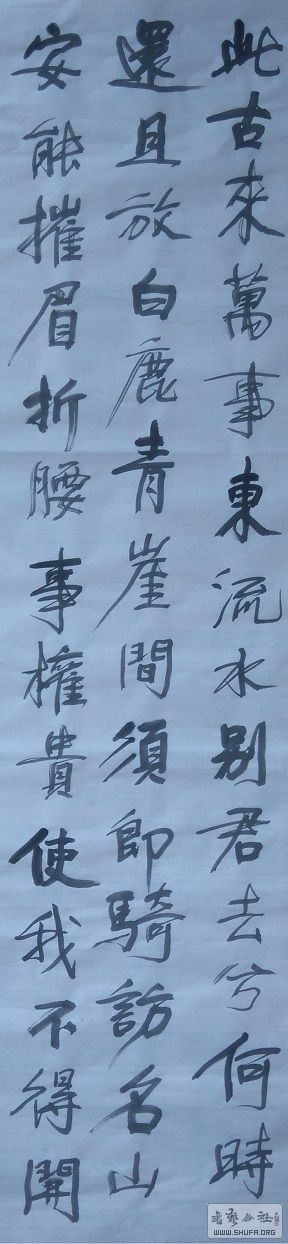 此古來萬事東流水别君去兮何時
還且放白鹿青崖間須即騎訪名山
安能摧眉折腰事權貴使我不得開
书艺公社
WWW.SHUFA.ORG